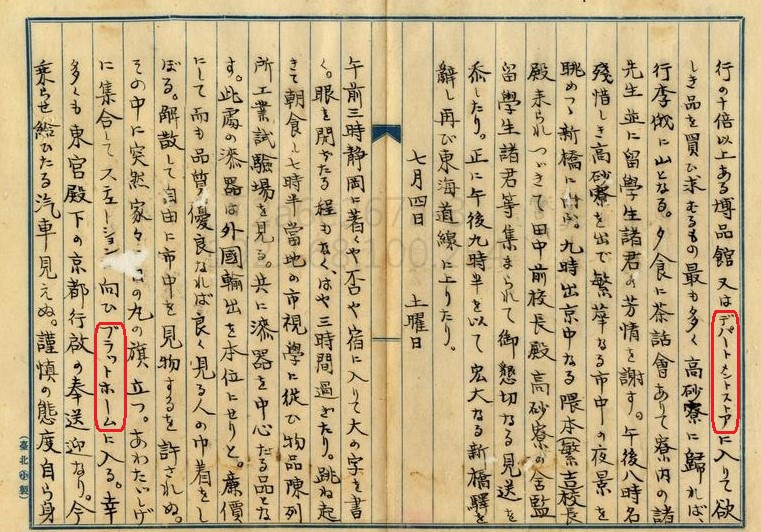 行の十倍以上ある博品館又はデパートメントストアに入りて欲
しき品を買ひ求むるもの最も多く高砂寮に歸れば
行李俄に山となる。夕食に茶話會ありて寮内の諸
先生並に留學生諸君の芳情を謝す。午後八時名
殘惜しき高砂寮を出で繁華なる市中の夜景を
眺めつゝ新橋に向ふ。九時出京中なる隈本(繁吉)校長
殿来られつゞきて田中前校長殿高砂寮の舎監
留學生諸君等集まられて御懇切なる見送を
忝したり。正に午後九時半を以て宏大なる新橋驛を
辭し再び東海道線に上りたり。
七月四日 土曜日
午前三時静岡に著くや否や宿に入りて大の字を書
く。眼を閉ぢたる程もなく、はや三時間過ぎたり。跳ね起
きて朝食し七時半當地の市視學に從ひ物品陳列
所工業試驗場を見る。共に漆器を中心たる品な
す。此處の漆器は外國輸出を本位にせりと。廉價
にして而も品質優良なれば良く見る人の巾着をし
ぼる。解散して自由に市中を見物するを許されぬ。
その中に突然家々に日の丸の旗立つ。あわたゞしげ
に集合してステーション向ひプラットホームに入る。幸
多くも東宮殿下の京都行啓の奉送迎なり。今
乘らせ給ひたる汽車見えぬ。謹慎の態度自ら身
(臺北小製)